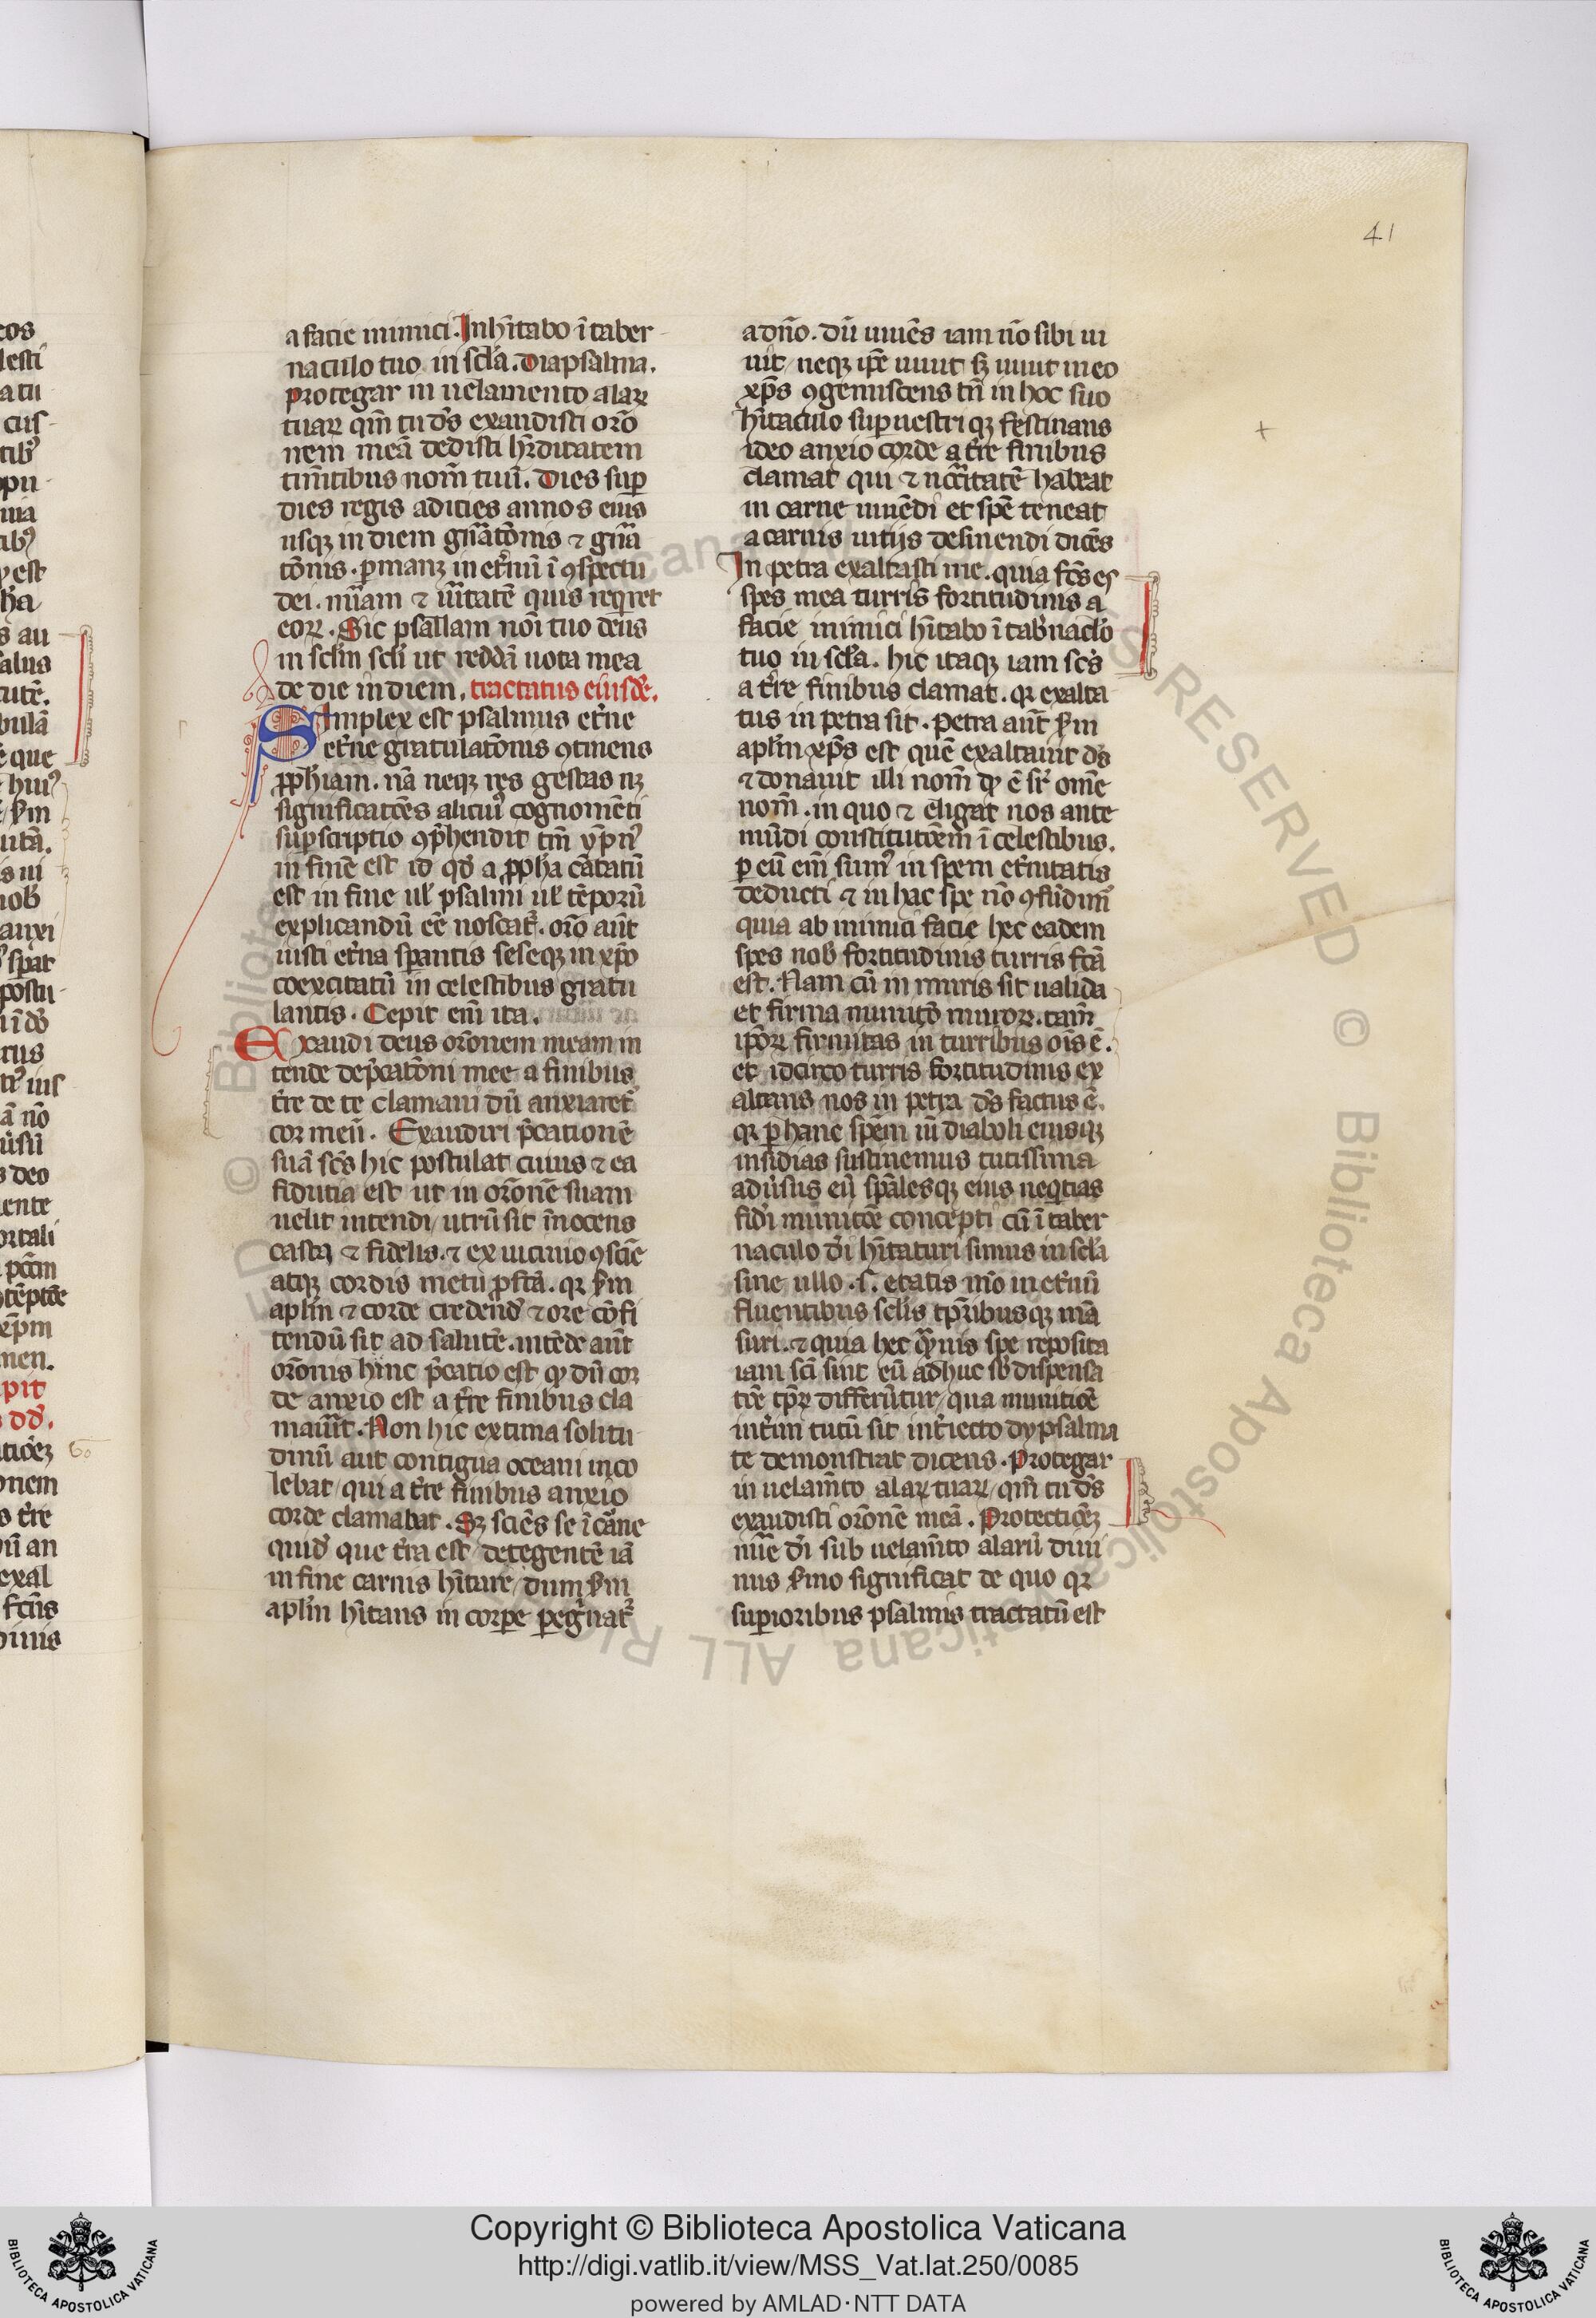 41
a facie inimici. Inh̃itabo ĩ taber
naculo tuo in sc̃la. Diapsalma.
Protegar in uelamento alaꝝ
tuaꝝ qm̃ tu ds̃ exaudisti orõ
nem meã dedisti hr̃ditatem
tim̃tibus nom̃ tuũ. Dies sup̱
dies regis adicies annos eius
usqꝫ in diem gñatõnis ⁊ gña
tõnis. ꝑmanꝫ in et̃nũ ĩ ꝯspectu
dei. mĩam ⁊ ũitatẽ quis reqͥret
eoꝝ. Sic psallam nõi tuo deus
in sc̃lm sc̃li ut reddã uota mea
de die in diem. tractatus eiusdẽ.
Simplex est psalmus et̃ne
et̃ne gratulatõnis ꝯtinens
ꝓph̃iam. nã neqꝫ res gestas nꝫ
significatões alicuiꝰ cognomẽti
suꝑscriptio ꝯp̃hendit tm̃ ẏp̃nꝰ
in finẽ est id qd̃ a ꝓph̃a cãtatũ
est in fine ul̃ psalmi ul̃ tẽporũ
explicandũ eẽ noscat᷑. orõ aũt
iusti et̃na sꝑantis seseqꝫ in xp̃o
coexcitatũ in celestibus gratu
lantis. Cepit eñi ita.
Exaudi deus orõnem meam in
tende dep̃catõni mee a finibus
t̃re de te clamaui dũ anxiaret᷑
cor meũ. Exaudiri p̃cationẽ
suã sc̃s hic postulat cuius ⁊ ea
fidutia est ut in orõnẽ suam
uelit intendi, utrũ sit ĩnocens
castꝰ ⁊ fidelis. ⁊ ex uicinio ꝯsciẽ
atqꝫ cordis metu ꝓfc̃a. qꝛ s̃m
aplm̃ ⁊ corde credend̃ ⁊ ore cõfi
tendũ sit ad salutẽ. intẽde aũt
orõnis hinc p̃catio est ꝙ dũ cor
de anxio est a t̃re finibus cla
mauĩt. Non hic extima solitu
dinũ aut contigua oceani inco
lebat, qui a t̃re finibus anxio
corde clamabat. Sꝫ sciẽs se ĩ cãne
quid̃ que t̃ra est detegentẽ iã
in fine carnis h̃itare, dum s̃m
aplm̃ h̃itans in corꝑe ꝑegͥnat᷑
a dño. dũ uiuẽs iam nõ sibi ui
uit, neqꝫ ip̃e uiuit sꝫ uiuit in eo
xp̃s ꝯgemiscens tñ in hoc suo
h̃itaculo suꝑuestri qꝫ festinans
ideo anxio corde a t̃re finibus
clamat qui ⁊ nc̃citatẽ habeat
in carne uiuẽdi et spẽ teneat
a carnis uitijs desinendi dicẽs
In petra exaltasti me. quia fc̃s es
spes mea turris fortitudinis a
facie inimici h̃itabo ĩ tab̃naclo
tuo in sc̃la. hic itaqꝫ iam sc̃s
a t̃re finibus clamat. qꝛ exalta
tus in petra sit. Petra aũt s̃m
aplm̃ xp̃s est quẽ exaltauit ds̃
⁊ donauit illi nom̃ ꝙ ẽ sr̃ omẽ
nom̃. in quo ⁊ eligat nos ante
mũdi constitutõem ĩ celestibus.
ꝑ eũ eñi sumꝰ in spem et̃nitatis
deducti ⁊ in hac spe nõ ꝯfũdimꝰ
quia ab inimici facie hec eadem
spes nob̃ fortitudinis turris fc̃a
est. Nam cũ in muris sit ualida
et firma munitõ muroꝝ. tam̃
ip̃oꝝ firmitas in turribus oĩs ẽ.
et idcirco turris fortitudinis ex
altans nos in petra ds̃ factus ẽ.
qꝛ ꝑ hanc spẽm ũ diaboli eiusqꝫ
insidias sustinemus tutissima
adũsus eũ spãlesqꝫ eius neqͥtias
fid̃i munitõe concepti cũ ĩ taber
naculo d̃i h̃itaturi simus in sc̃la
sine ullo .s. etatis m̃o in et̃nũ
fluentibus sc̃lis tp̃ribusqꝫ mã
suri. ⁊ quia hec qͣuis spe reposita
iam sc̃i sint eũ adhuc sb̃ dispensa
tiõe tp̃ꝝ differũtur, qua munitiõe
int̃im tutũ sit int̃iecto dypsalma
te demonstrat dicens. Protegar
in uelam̃to alaꝝ tuaꝝ, qm̃ tu ds̃
exaudisti orõnẽ meã. Protectiõꝫ
nr̃e d̃i sub uelam̃to alarũ diui
nus s̃mo significat de quo qꝛ
suꝑioribus psalmis tractatũ est
Copyright © Biblioteca Apostolica Vaticana
http://digi.vatlib.it/view/MSS_Vat.lat.250/0085
powered by AMLAD·NTT DATA
BIBLIOTECA APOSTOLICA VATICANA
BIBLIOTECA APOSTOLICA VATICANA